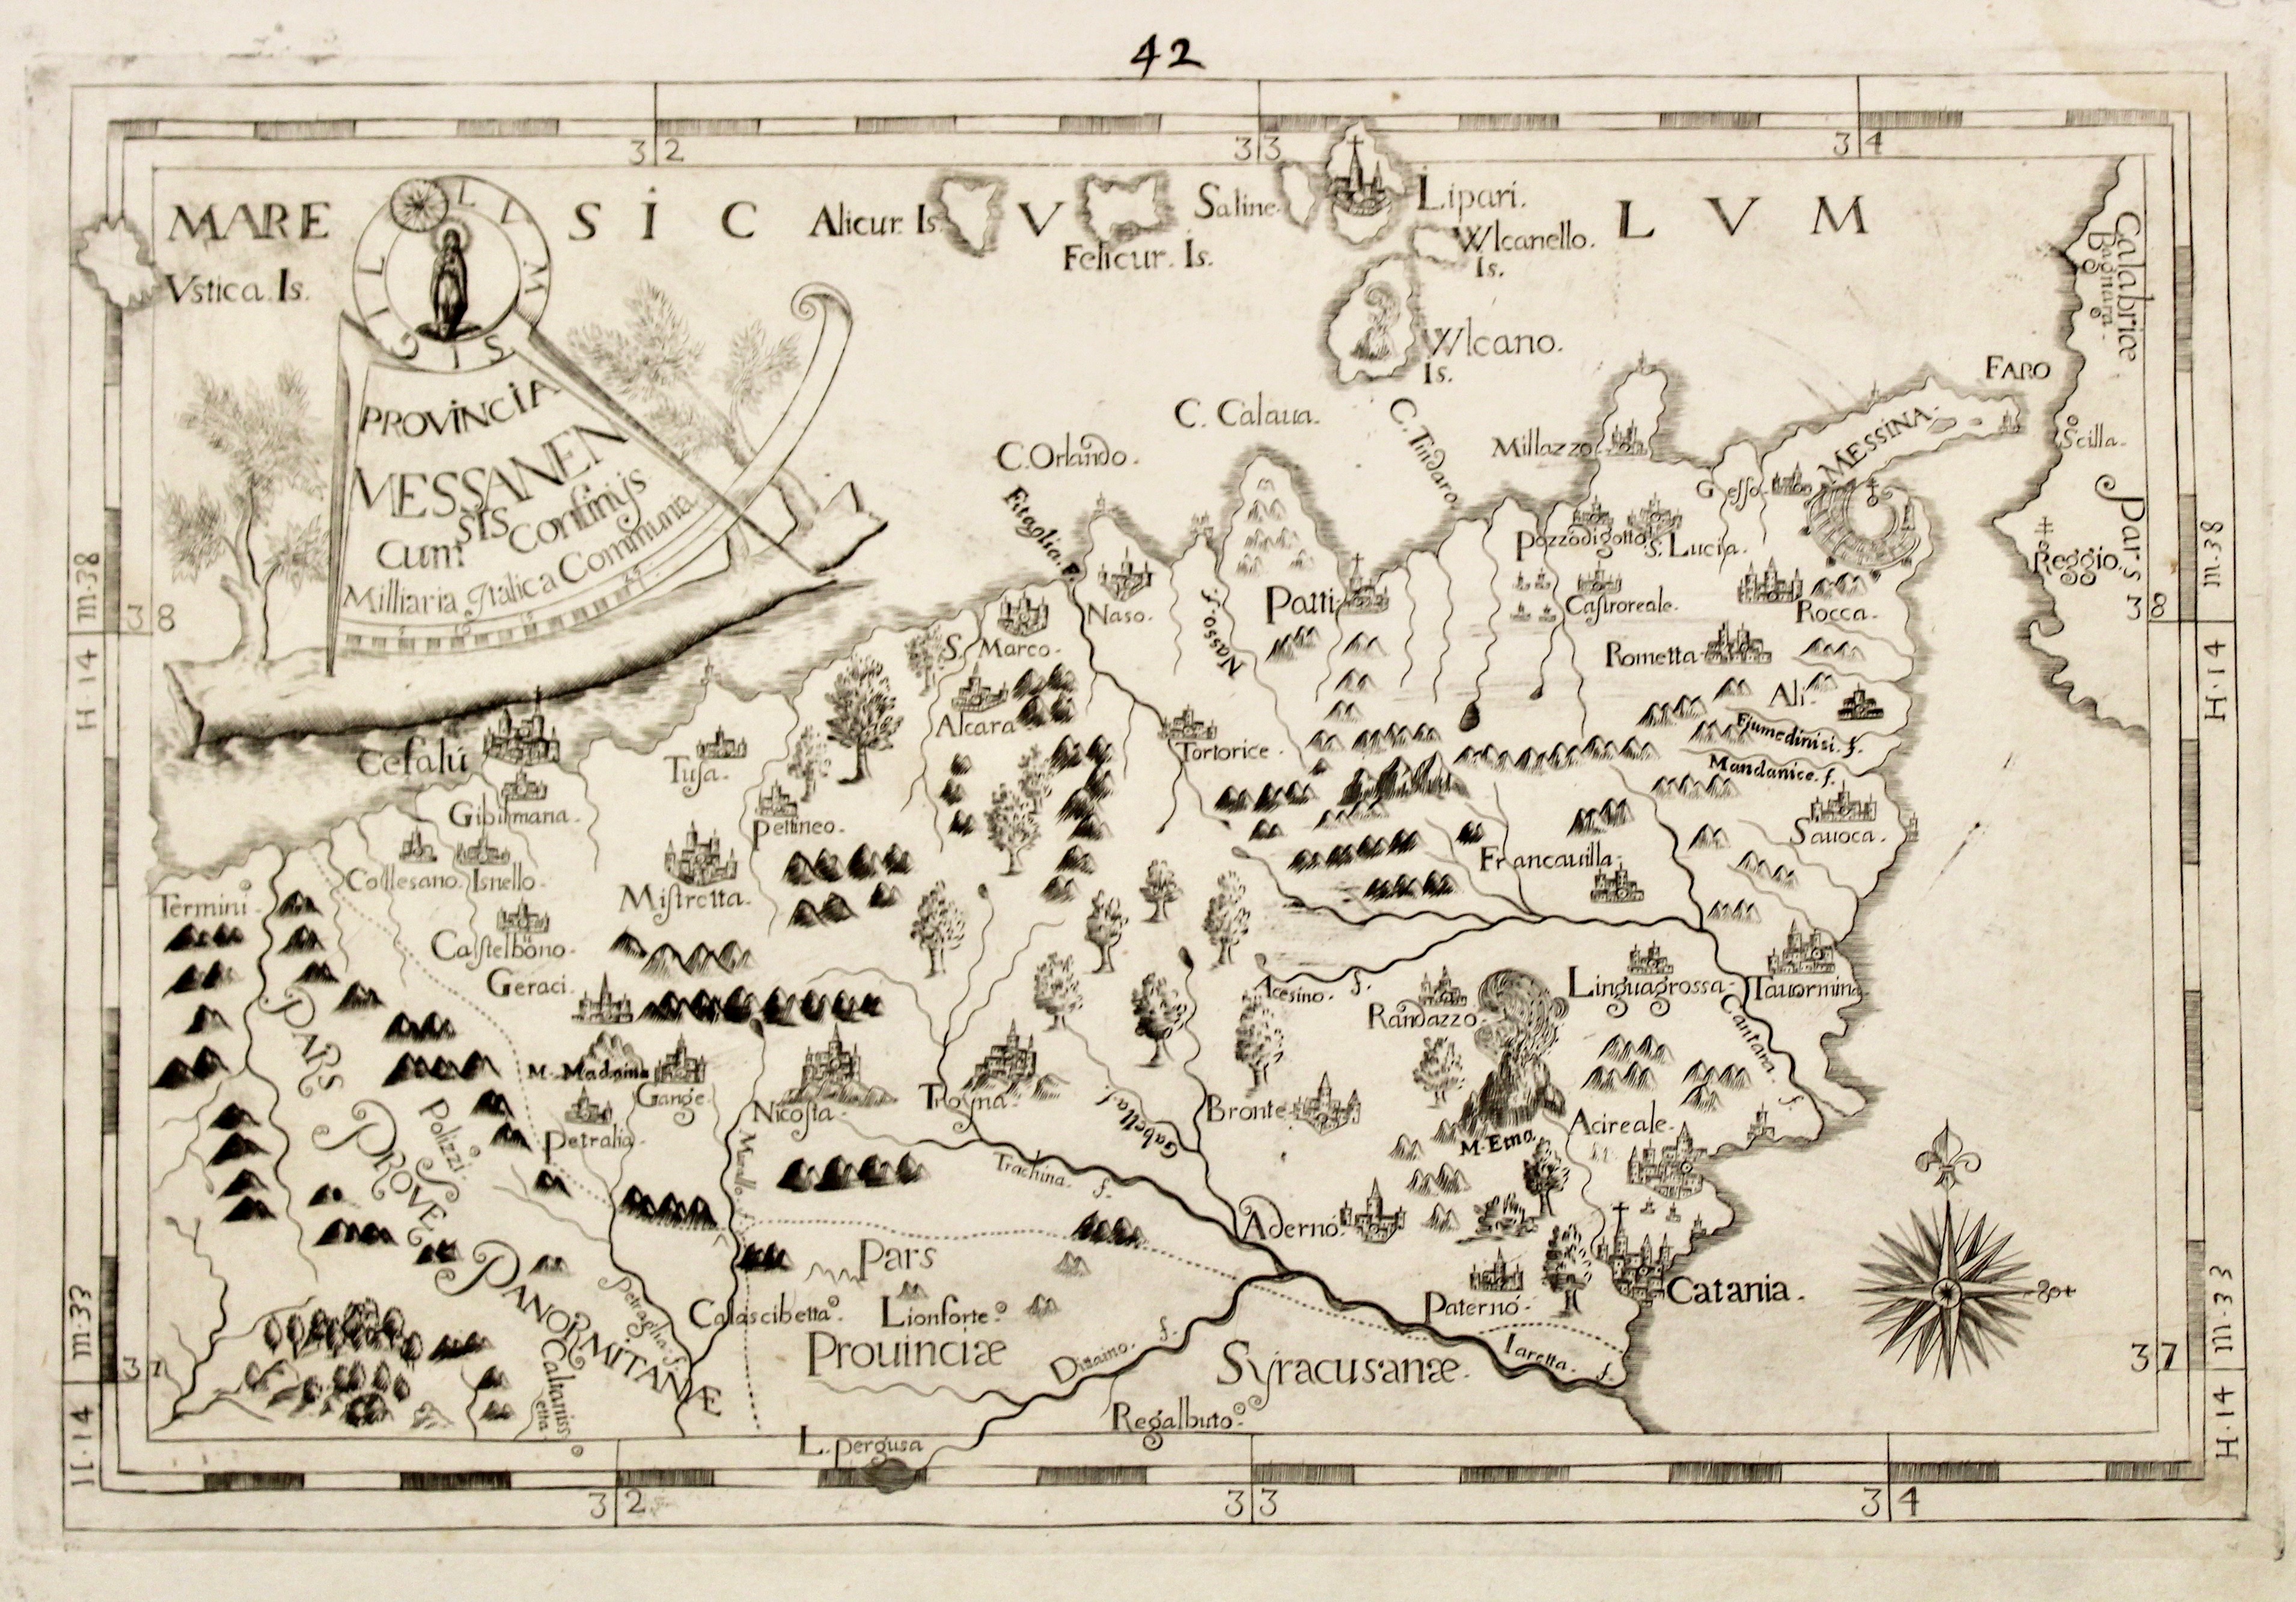 42
32
33
34
MARE SİCVLVM
Vstica. Is.
Alicur. Is.
Felicur. İs.
Saline
Lipari.
Wlcanello.
Is.
Wlcano.
Is.
SIGILLVM
PROVİNCİA
MESSANEN
SİS
Cum Confinijs
Milliaria Italica Communia
Calabriæ
Bagnara.
FARO
Scilla.
Pars
Reggio.
C. Calaua.
C. Orlando.
C. Tindaro.
Millazzo
MESSINA.
Gesso.
Fitaglia. f.
Pozzodigotto
S. Lucia.
Naso.
Nasso. f.
Patti
Castroreale.
Rocca.
S. Marco.
Rometta
Alcara
Ali.
Fiumedinisi. f.
Mandanice. f.
Cefalú
Tusa.
Tortorice
Gibilmana.
Pettineo.
Sauoca.
Collesano.
Isnello.
Francauilla.
Termini.
Mistretta.
Castelbuono.
Geraci.
Acesino. f.
Randazzo
Linguagrossa.
Tauormina
Cantara. f.
M. Madonia
Gange.
Nicosia.
Troina.
Gabella. f.
Bronte
M. Etna
Acireale.
Polizzi.
Petralia.
Morello. f.
Trachina. f.
Adernó.
PARS PROVE PANORMİTANÆ
Pars
Prouinciæ
Syracusanæ.
Calascibetta.
Lionforte.
Paternó.
Catania.
Petraglia. f.
Caltanissetta
Dittaino. f.
Iaretta. f.
Regalbuto.
L. pergusa
38
38
37
37
H. 14
m. 38
H. 14
m. 38
H. 14
m. 33
H. 14
m. 33
32
33
34